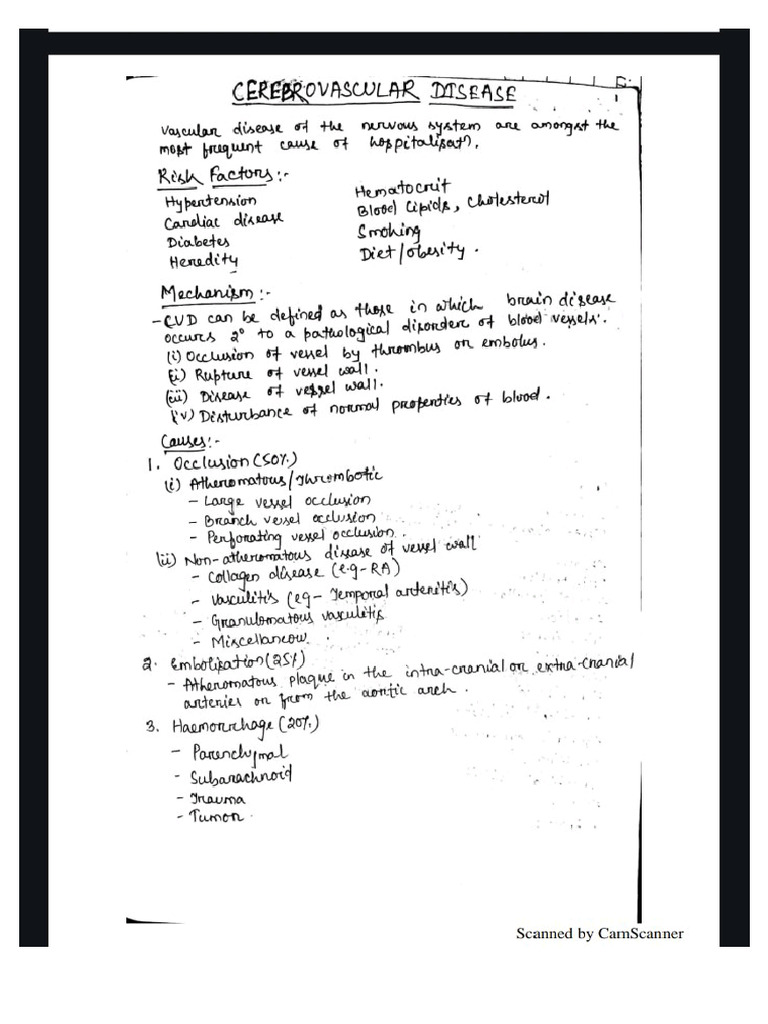 CEREBROVASCULAR DISEASE
1
Vascular disease of the nervous system are amongst the
most frequent cause of hospitalisatn.
Risk Factors:-
Hypertension
Cardiac disease
Diabetes
Heredity
Hematocrit
Blood Lipids, Cholesterol
Smoking
Diet/obesity.
Mechanism:-
- CVD can be defined as those in which brain disease
occurs 2° to a pathological disorder of blood vessels.
(i) Occlusion of vessel by thrombus or embolus.
(ii) Rupture of vessel wall.
(iii) Disease of vessel wall.
(iv) Disturbance of normal properties of blood.
Causes:-
1. Occlusion (50%)
(i) Atheromatous/Thrombotic
- Large vessel occlusion
- Branch vessel occlusion
- Perforating vessel occlusion.
(ii) Non-atheromatous disease of vessel wall
- Collagen disease (e.g-RA)
- Vasculitis (eg- Temporal arteritis)
- Granulomatous vasculitis
- Miscellaneous.
2. Embolisation (25%)
- Atheromatous plaque in the intra-cranial or extra-cranial
arteries or from the aortic arch.
3. Haemorrhage (20%)
- Parenchymal
- Subarachnoid
- Trauma
- Tumor.
Scanned by CamScanner